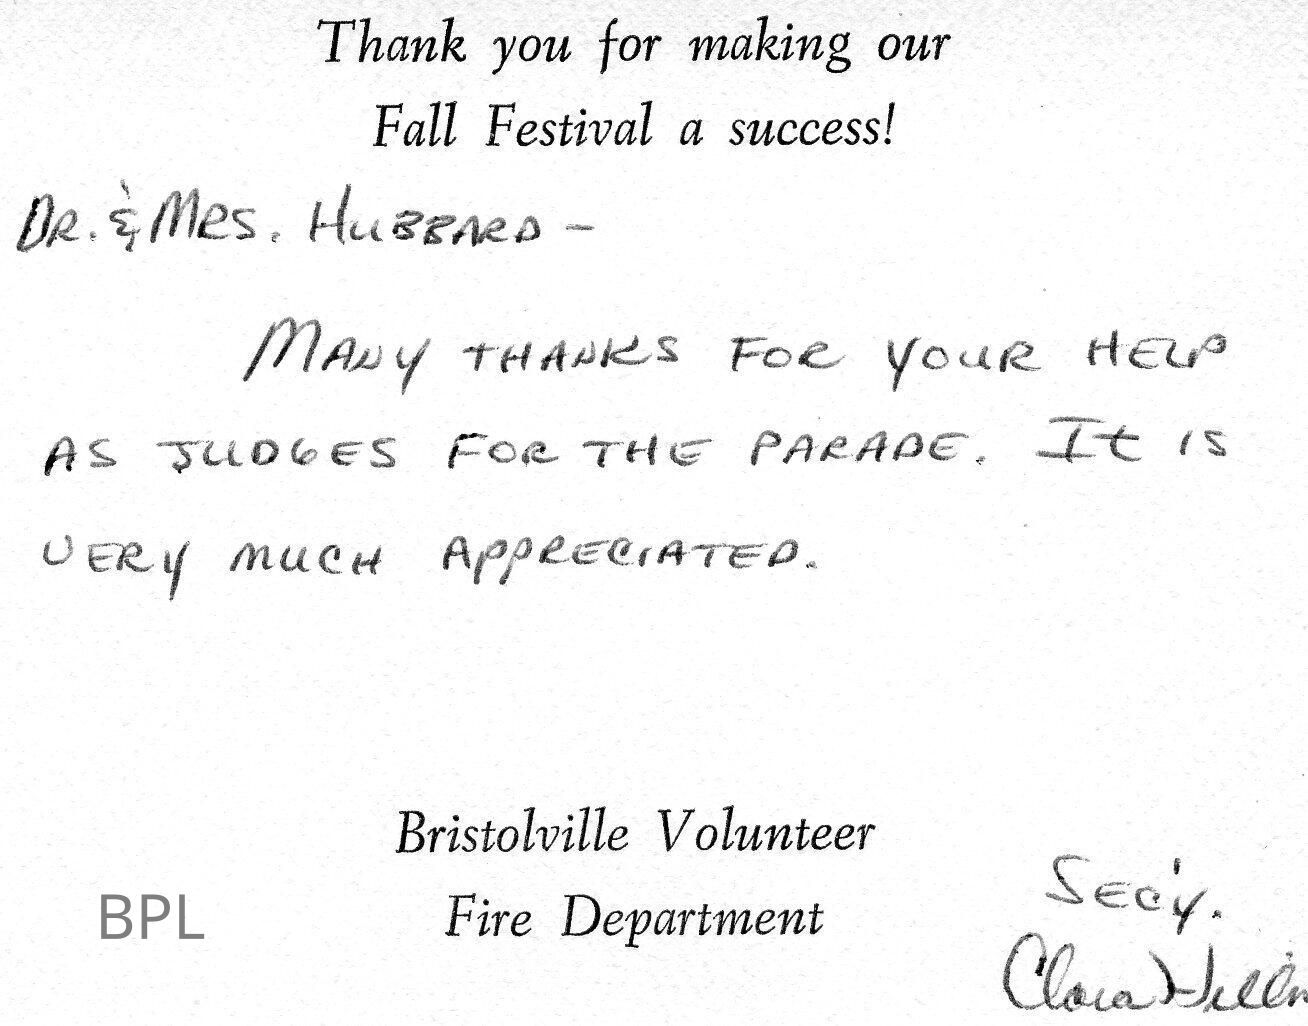 Thank you for making our
Fall Festival a success!
DR. & MRS. HUBBARD –
MANY THANKS FOR YOUR HELP
AS JUDGES FOR THE PARADE. It IS
VERY MUCH APPRECIATED.
Bristolville Volunteer
Fire Department
BPL
SEC'Y.
Clara